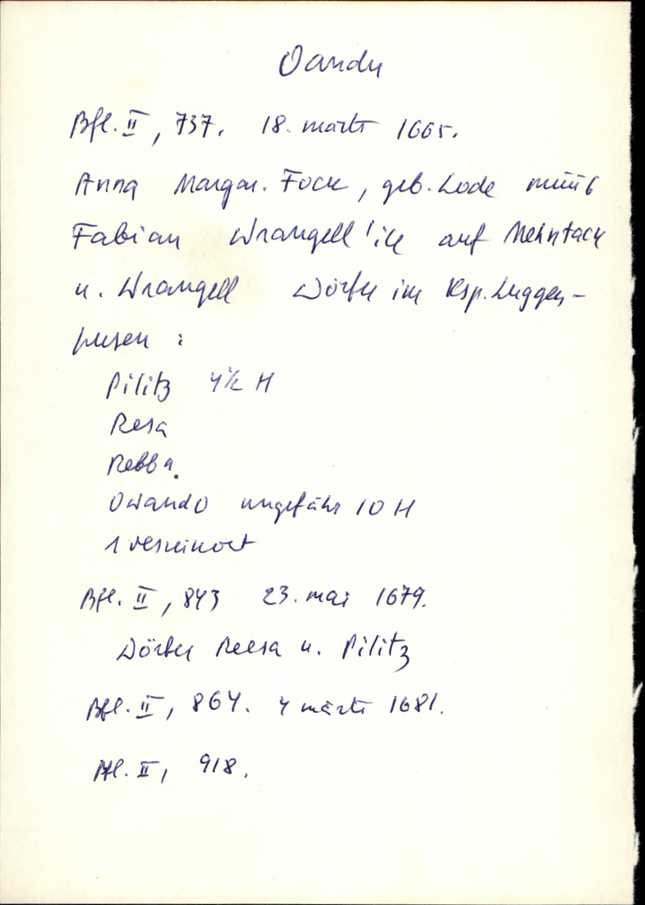 Oandu
Bfl. II, 737. 18. märts 1665.
Anna Margar. Fock, geb. Lode müüb
Fabian Wrangell'ile auf Mehntack
u. Wrangell Dörfer im Ksp. Luggen-
husen :
Pilitz 4½ H
Resa
Rebba
Owando ungefähr 10 H
1 vesikoht
Bfl. II, 843 23. mai 1679.
Dörfer Reesa u. Pilitz
Bfl. II, 864. 4 märts 1681.
Bfl. II, 918.